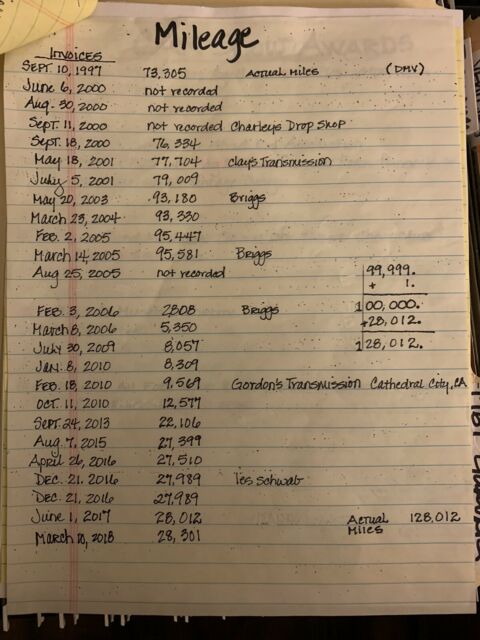 Mileage
INVOICES
SEPT. 10, 1997 73,305 Actual Miles (DMV)
June 6, 2000 not recorded
Aug. 30, 2000 not recorded
Sept. 11, 2000 not recorded Charley's Drop Shop
Sept. 18, 2000 76,334
May 18, 2001 77,704 Clay's Transmission
July 5, 2001 79,009
May 20, 2003 93,180 Briggs
March 23, 2004 93,330
Feb. 2, 2005 95,447
March 14, 2005 95,581 Briggs
Aug 25, 2005 not recorded
99,999.
+ 1.
100,000.
+28,012.
128,012.
Feb. 3, 2006 2808 Briggs
March 8, 2006 5,350
July 30, 2009 8,057
Jan. 8, 2010 8,309
Feb. 18, 2010 9,569 Gordon's Transmission Cathedral City, CA
Oct. 11, 2010 12,577
Sept. 24, 2013 22,106
Aug. 7, 2015 27,399
April 26, 2016 27,510
Dec. 21, 2016 27,989 Les Schwab
Dec. 21, 2016 27,989
June 1, 2017 28,012 Actual Miles 128,012
March 10, 2018 28,301